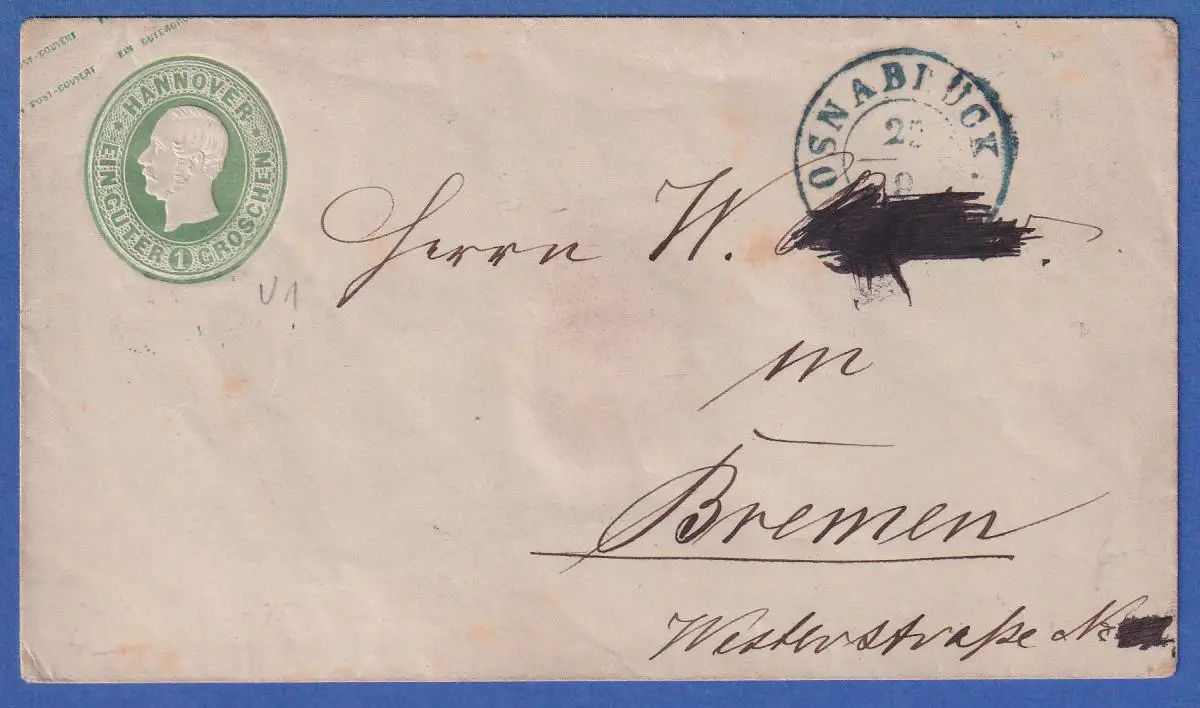 POST-COUVERT EIN GUTERGRO
POST-COUVERT
HANNOVER
EIN GUTER 1 GROSCHEN
OSNABRÜCK
25
9
V1
Herrn W.
in
Bremen
Westerstraße No